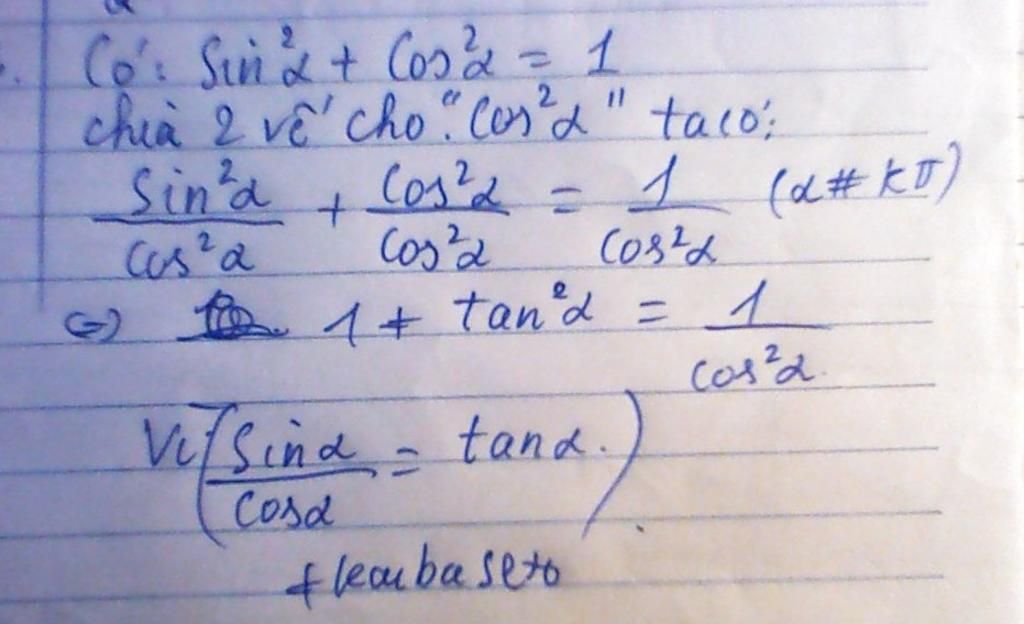 Có: Sin²α + Cos²α = 1
chia 2 vế cho "Cos²α" ta có:
Sin²α/cos²α + Cos²α/Cos²α = 1/Cos²α (α # kπ)
⇔ 1 + tan²α = 1/cos²α
Vì (Sinα/Cosα = tanα.)